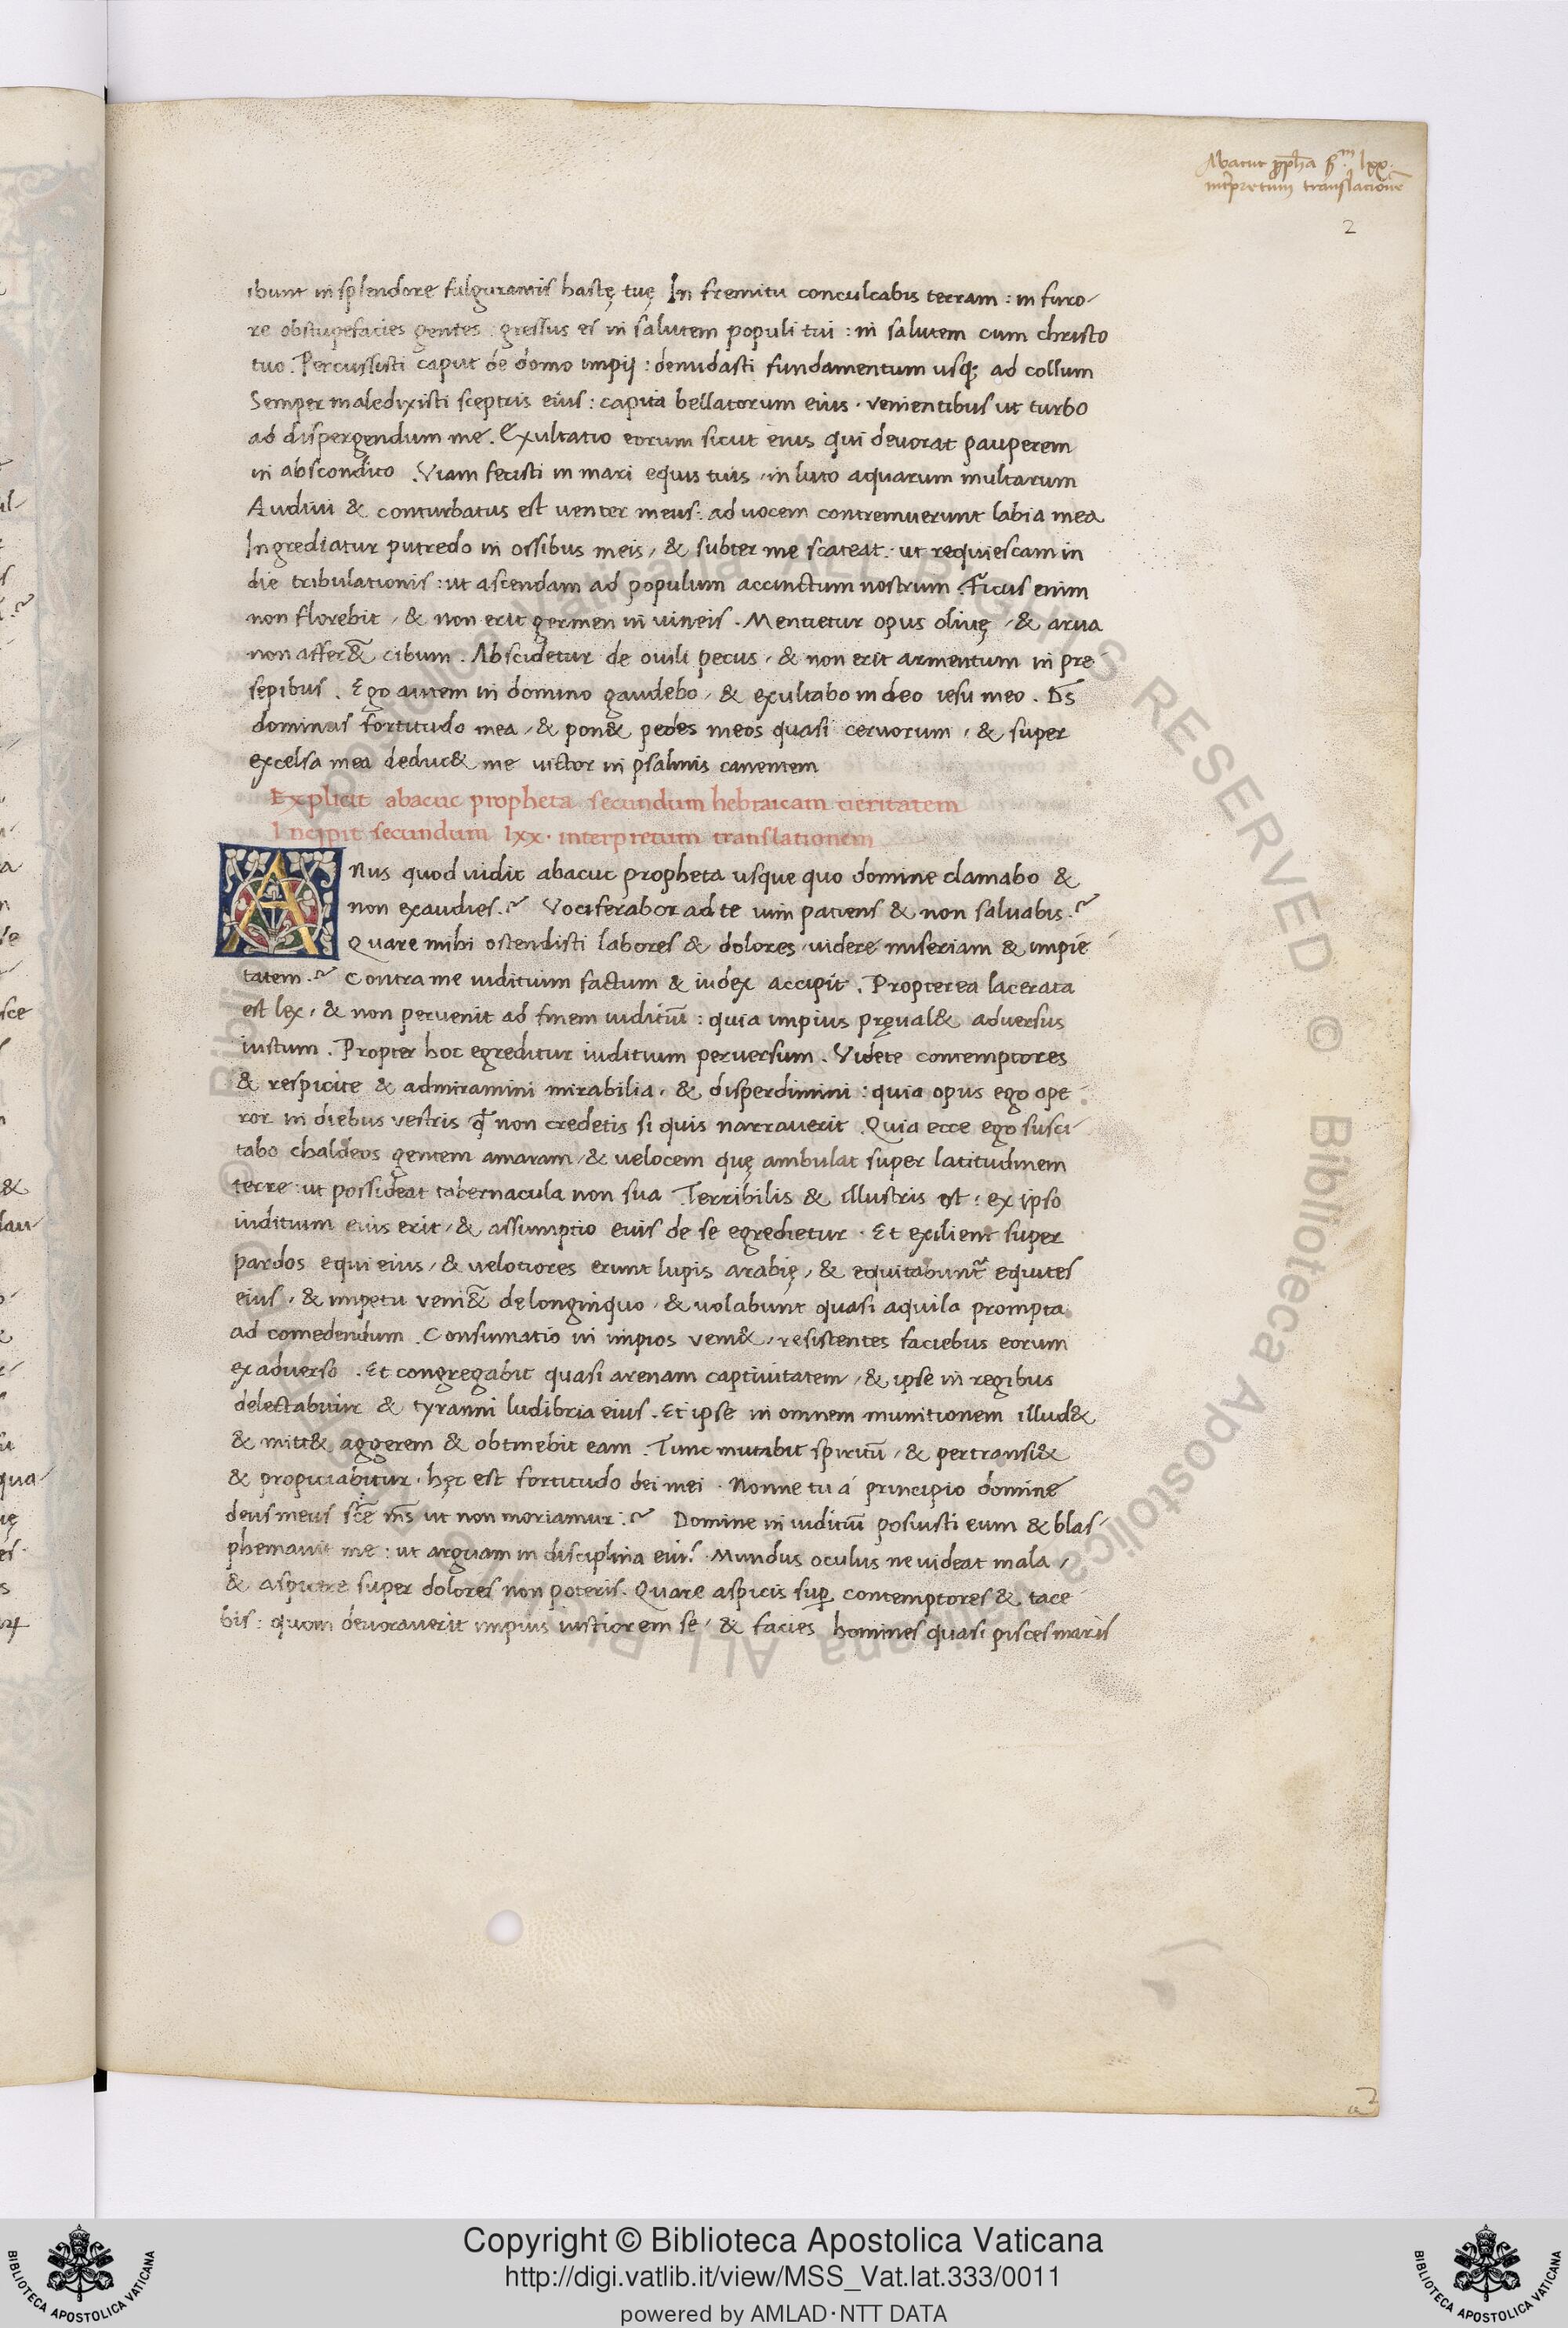 Abacuc ꝓph̄a ẜm lxx.
interpretum translationē
2
ibunt in splendore fulgurantis hastę tuę In fremitu conculcabis terram : in furo-
re obstupefacies gentes : gressus es in salutem populi tui : in salutem cum christo
tuo. Percussisti caput de domo impij : denudasti fundamentum usq; ad collum
Semper maledixisti sceptris eius : capita bellatorum eius . venientibus ut turbo
ad dispergendum me. Exultatio eorum sicut eius qui devorat pauperem
in abscondito . Viam fecisti in mari equis tuis , in luto aquarum multarum
Audivi & conturbatus est venter meus : ad vocem contremuerunt labia mea
Ingrediatur putredo in ossibus meis , & subter me scateat . ut requiescam in
die tribulationis : ut ascendam ad populum accinctum nostrum . Ficus enim
non florebit , & non erit germen in vineis . Mentietur opus olivę , & arua
non affer& cibum . Abscidetur de ouili pecus , & non erit armentum in pre
sepibus . Ego autem in domino gaudebo , & exultabo in deo iesu meo . Ds̄
dominus fortitudo mea , & pon& pedes meos quasi ceruorum , & super
excelsa mea deduc& me victor in psalmis canentem
Explicit abacuc propheta secundum hebraicam ueritatem
Incipit secundum lxx . interpretum translationem
Anus quod uidit abacuc propheta usque quo domine clamabo &
non exaudies .~ Vociferabor ad te uim patiens & non saluabis .~
Quare mihi ostendisti labores & dolores , uidere miseriam & impie
tatem .~ Contra me iuditium factum & iudex accipit . Propterea lacerata
est lex , & non pervenit ad finem iuditiū : quia impius pręual& adversus
iustum . Propter hoc egreditur iuditium perversum . Videte contemptores
& respicite & admiramini mirabilia , & disperdimini : quia opus ego ope
ror in diebus vestris qđ non credetis si quis narraverit . Quia ecce ego susci-
tabo chaldeos gentem amaram , & uelocem quę ambulat super latitudinem
terre : ut possideat tabernacula non sua Terribilis & illustris est : ex ipso
iuditium eius erit , & assumptio euis de se egredietur . Et exilient super
pardos equi eius , & uelotiores erunt lupis arabię , & equitabunt equites
eius , & impetu veni& de longinquo , & uolabunt quasi aquila prompta
ad comedendum . Consumatio in impios veni& , resistentes faciebus eorum
ex adverso . Et congregabit quasi arenam captiuitatem , & ipse in regibus
delectabitur & tyranni ludibria eius . Et ipse in omnem munitionem illud&
& mitt& aggerem & obtinebit eam . Tunc mutabit spiritū , & pertransi&
& propitiabitur . hęc est fortitudo dei mei . Nonne tu á principio domine
deus meus sc̄e ms̄ ut non moriamur .~ Domine in iuditiū posuisti eum & blas-
phemavit me : ut arguam in disciplina eius . Mundus oculus ne uideat mala ,
& aspicere super dolores non poteris . Quare aspicis suꝑ contemptores & tace
bis : quom devoraverit impius iustiorem se , & facies homines quasi pisces maris
a 2
© Biblioteca Apostolica Vaticana ALL RIGHTS RESERVED © Biblioteca Apostolica Vaticana ALL RIGHTS RESERVED
Copyright © Biblioteca Apostolica Vaticana
http://digi.vatlib.it/view/MSS_Vat.lat.333/0011
powered by AMLAD·NTT DATA
BIBLIOTECA APOSTOLICA VATICANA
BIBLIOTECA APOSTOLICA VATICANA